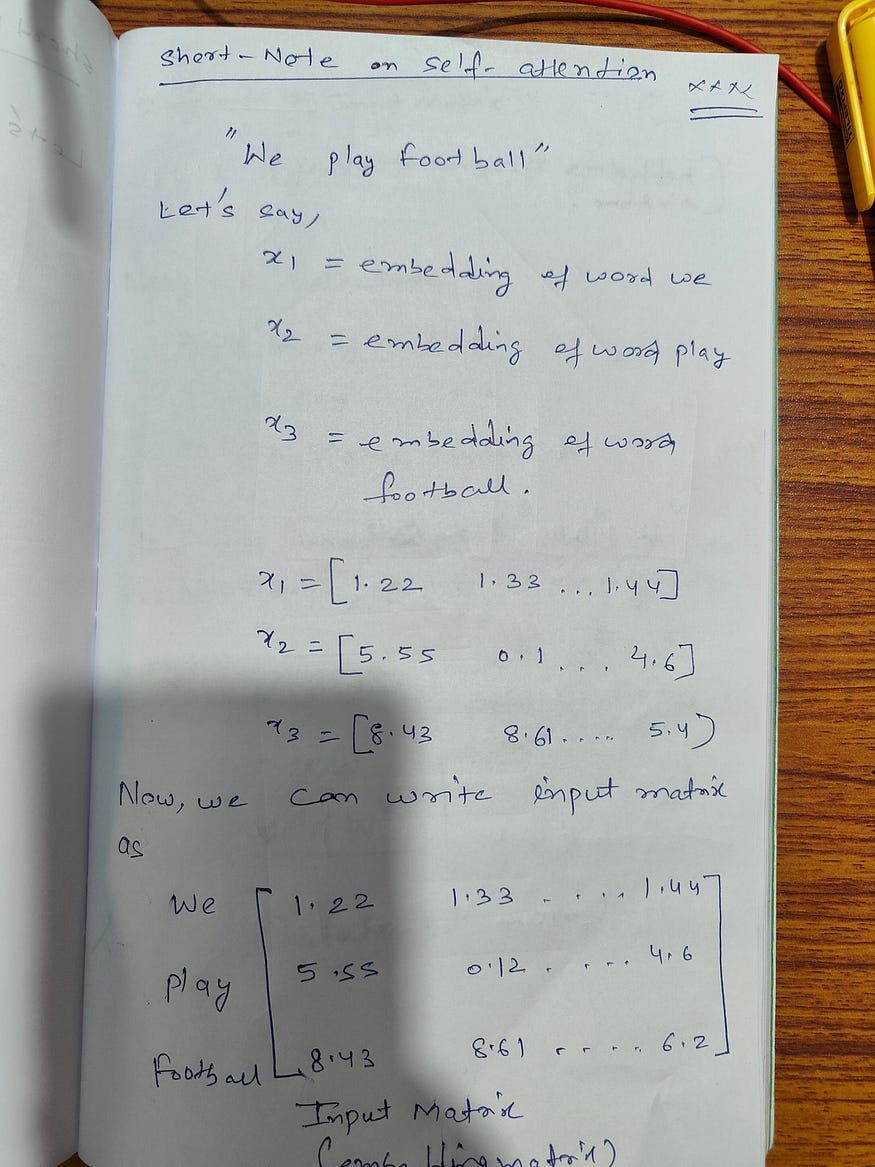 Short-Note on self-attention
xxx
"We play football"
Let's say,
x1 = embedding of word we
x2 = embedding of word play
x3 = embedding of word
football.
x1 = [1.22 1.33 ... 1.44]
x2 = [5.55 0.1 ... 4.6]
x3 = [8.43 8.61..... 5.4)
Now, we can write input matrix
as
We [1.22 1.33 .... 1.44]
Play 5.55 0.12 .... 4.6
Football 8.43 8.61 ..... 6.2
Input Matrix
(embedding matrix)